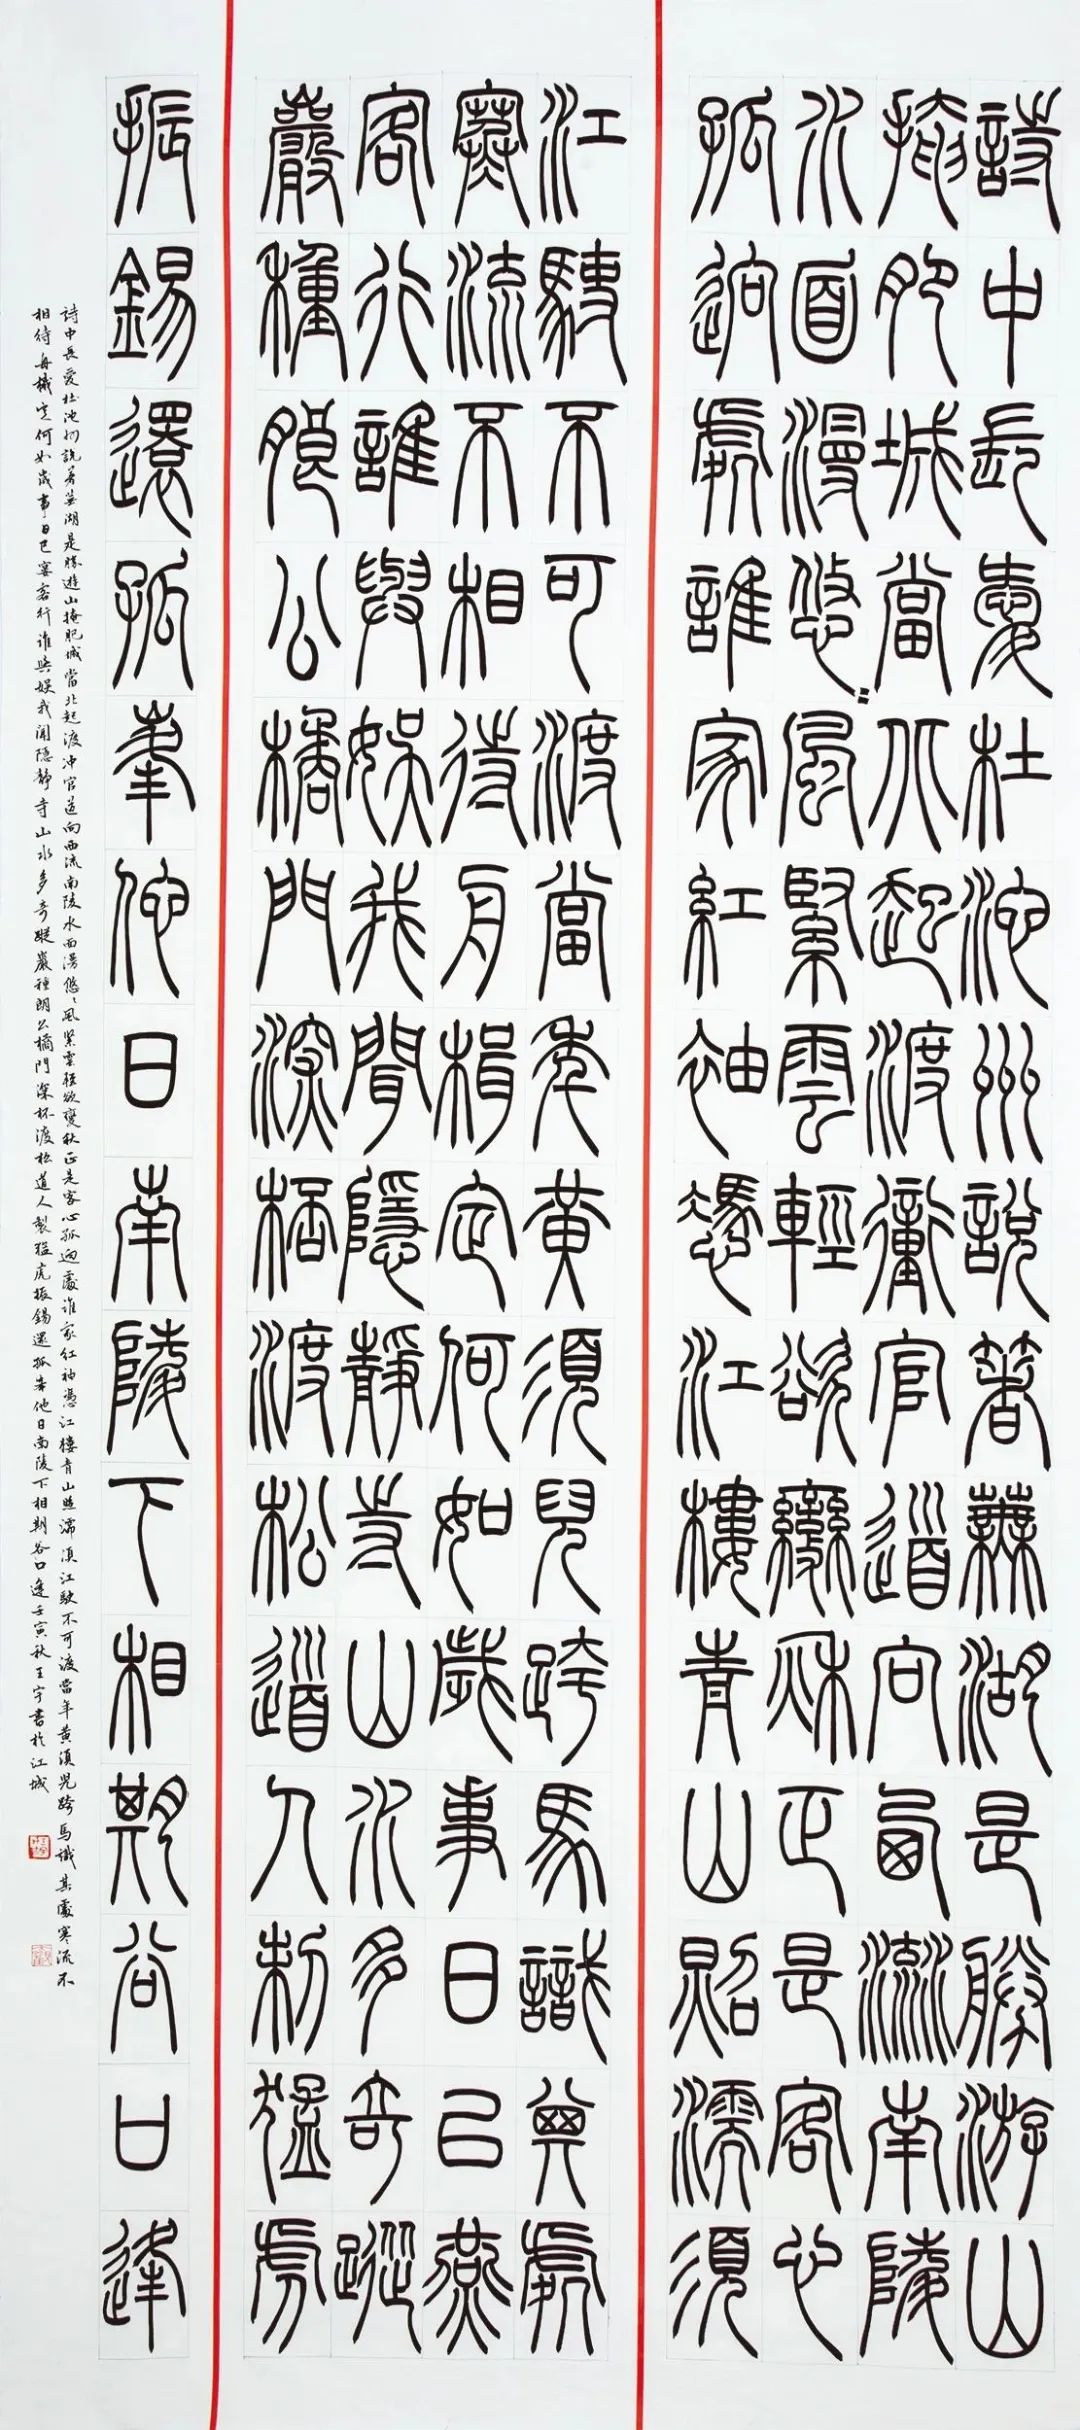 詩中長愛杜池州說著蕪湖是勝游山
掩肥城當北起渡衝官道向西流南陵
水面漫悠〻風緊雲輕欲變秋正是客心
孤迥處誰家紅袖憑江樓青山照濡須
江駛不可渡當年黃須兒跨馬識其處
寒流不相待舟楫定何如歲事日已燕
客行誰與娛我聞隱靜寺山水多奇蹤
巖種朗公橘門深桮渡松道人制猛虎
振錫還孤峯他日南陵下相期谷口逢
詩中長愛杜池州說著蕪湖是勝遊山掩肥城當北起渡冲官道向西流南陵水面漫悠〻風緊雲輕欲變秋正是客心孤迥處誰家紅袖憑江樓青山照濡湏江駛不可渡當年黃湏兒跨馬識其處寒流不
相待舟檝定何如歲事日已宴客行誰與娛我聞隱靜寺山水多奇蹤巖種朗公橘門深杯渡松道人製猛虎振錫還孤峯他日南陵下相期谷口逢壬寅秋王宇書於江城